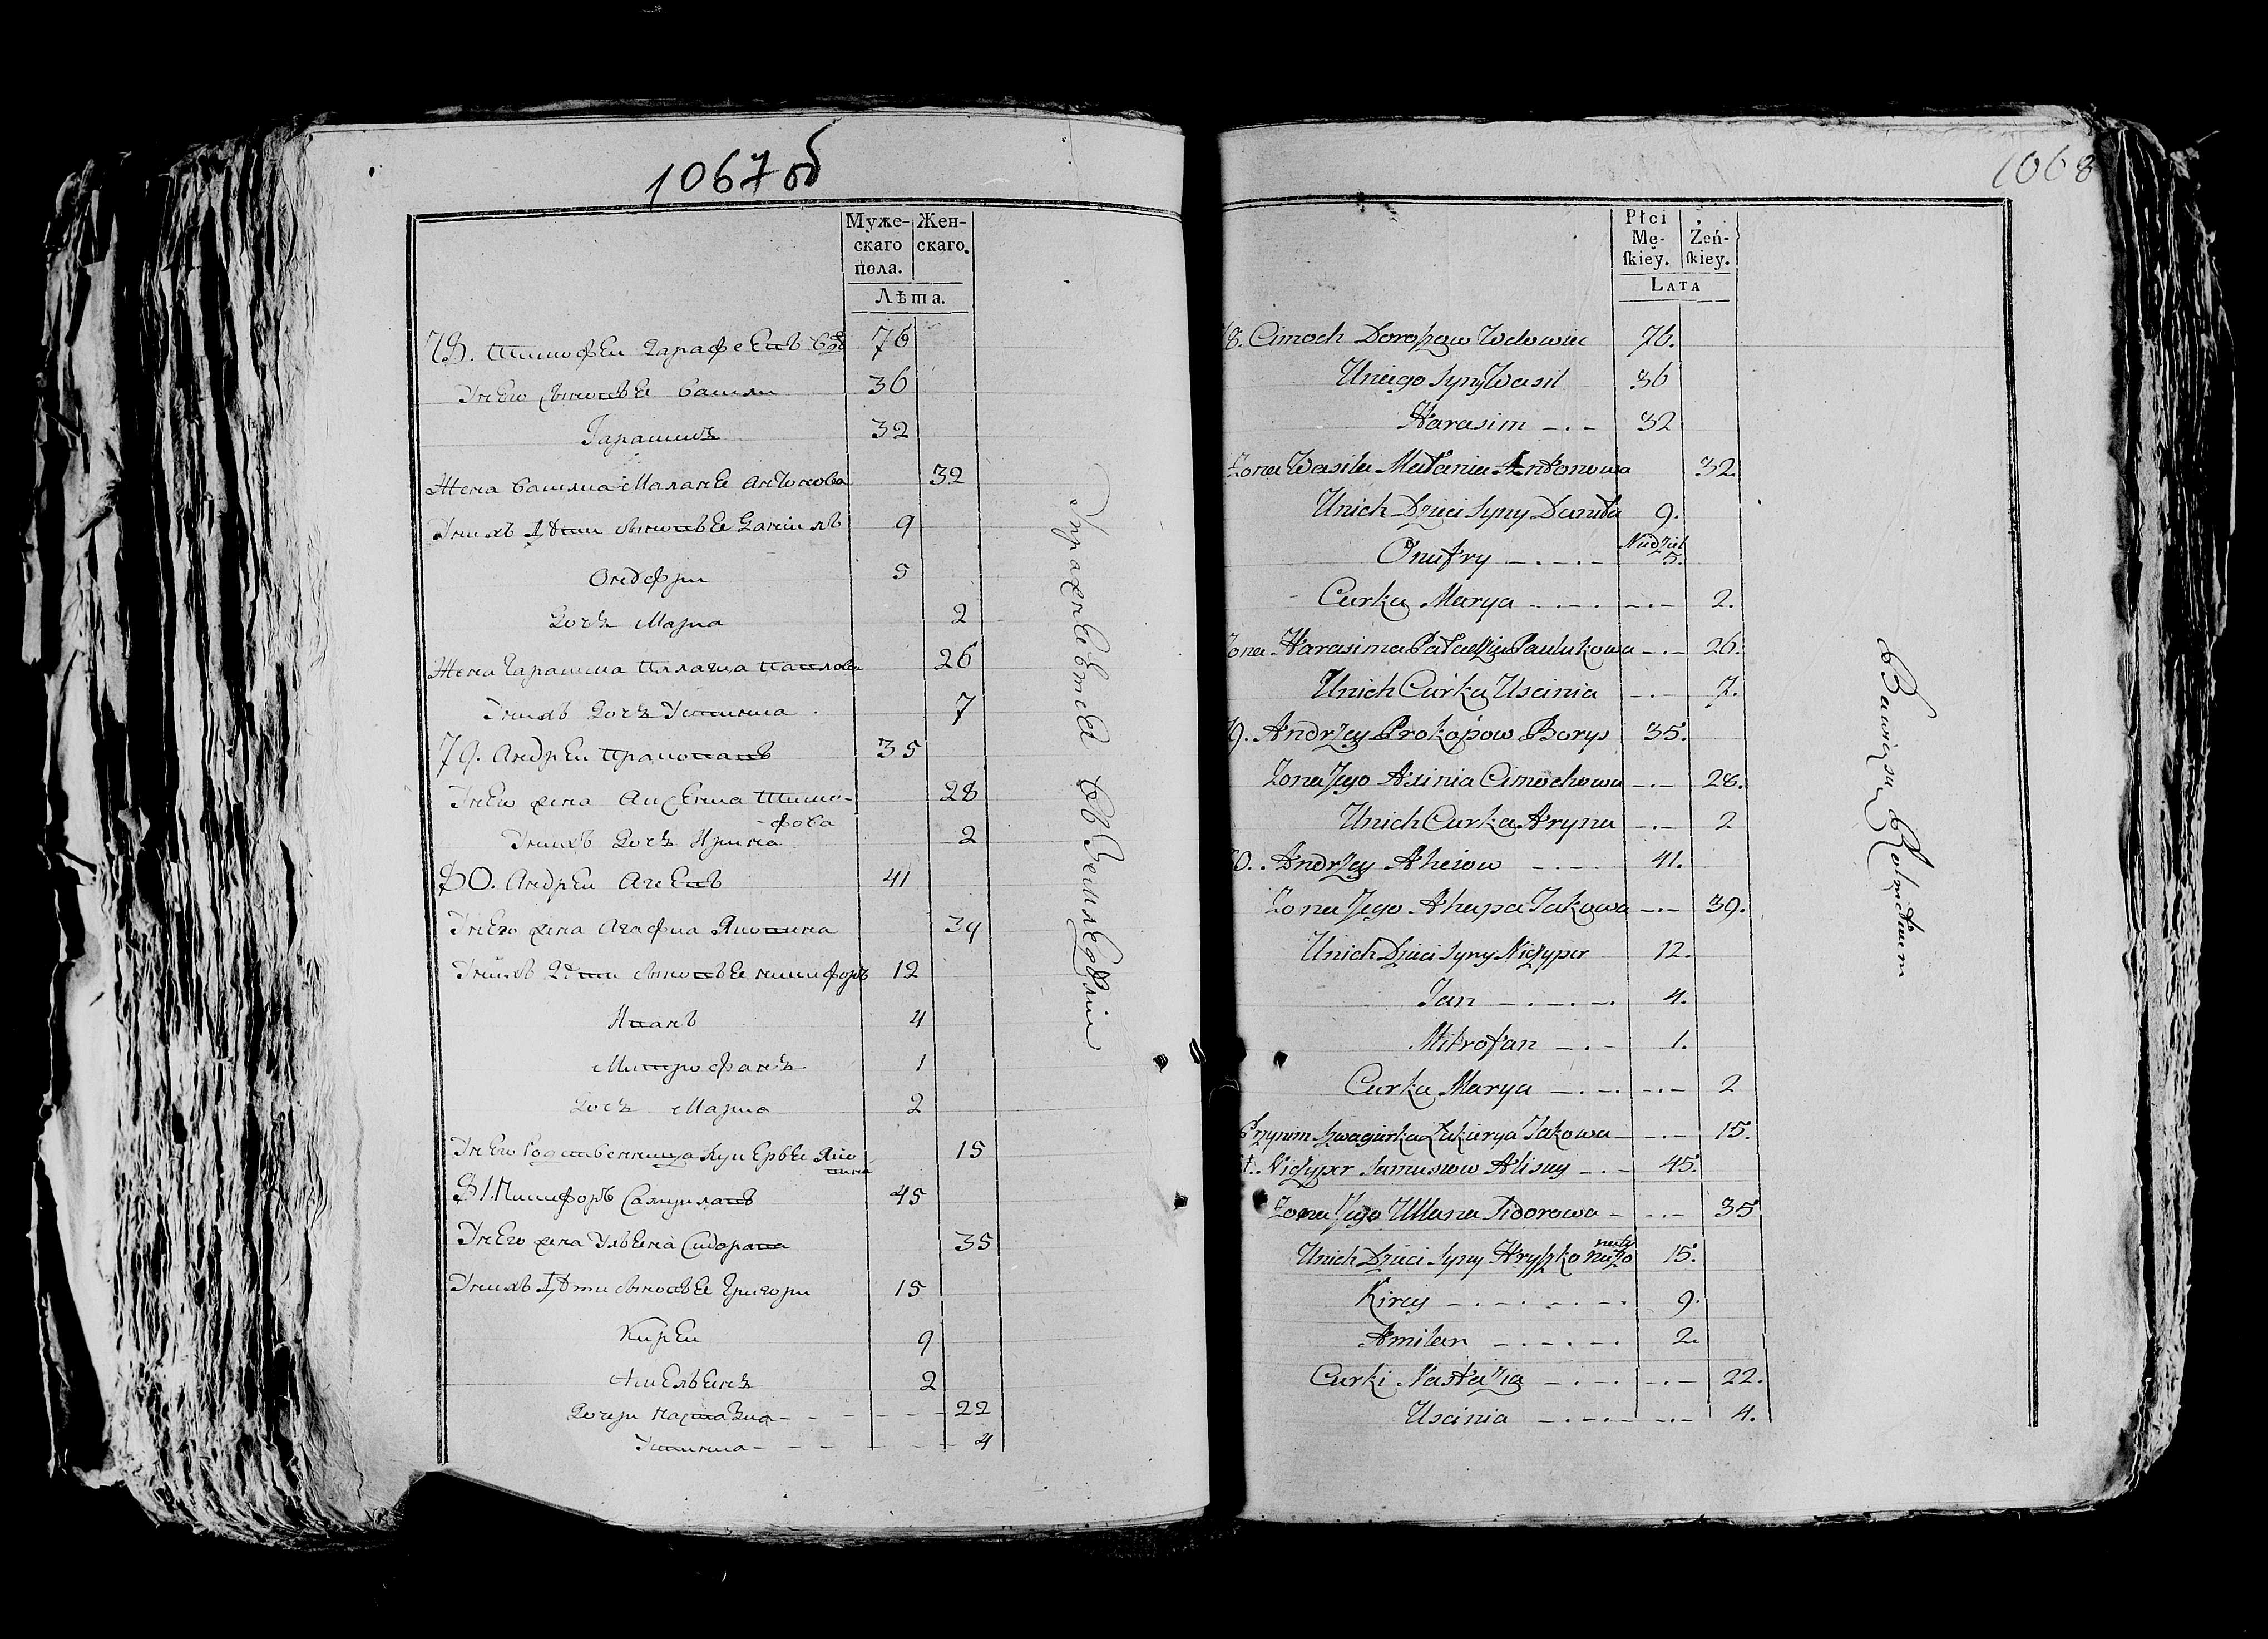 1067об
Муже-
скаго
пола.
Жен-
скаго.
Лѣта.
78. Тимофеи Дарофеевъ вдв 76
Унего сыновье василеи 36
Гарасимъ 32
Жена василиа Маланье антонова 32
Унихъ дѣти сыновье Данилъ 9
Онофри 5
Дочь Мариа 2
Жена гарасима Палагиа павлова 26
Унихъ дочь Устиниа 7
79. Андреи Прокоповъ 35
Унего жена Аксениа Тимо- 28
-фова
Унихъ дочь Ирина 2
80. Андреи Агеевъ 41
Унего жена Агафиа Яковлева 39
Унихъ дѣти сыновье никифоръ 12
Иванъ 4
Митрофанъ 1
дочь Мариа 2
Унего родственница Лукерье Яко 15
81. Никифоръ Самуиловъ 45
Унего жена Ульена Сидорова 35
Унихъ дѣти сыновье Григори 15
Кирей 9
Амельенъ 2
Дочери Настазиа - - - - - 22
Устиниа - - - - - 4
Упражнеевтса въ Земледелie
1068
Płci
Mę-
skiey.
Żeń-
skiey.
LATA
8. Cimoch Doroszow Wdowiec 76.
Uniego Syny Wasil 36
Harasim -.- 32
Zona Wasila Matania Antonowa 32.
Unich Dzieci Syny Daniła 9.
Onufry -.-.- Niedziel 5.
Curka Marya -.-.- -.- 2.
Zona Harasima Pałaszja Paulukowa -.- 26.
Unich Curka Uscinia -.- 7.
9. Andrzey Prokopow Borys 35.
Zona Jego Axinia Cimochowa -.- 28.
Unich Curka Aryna -.- 2
0. Andrzey Aheiow -.-.- 41.
Zona Jego Ahapa Jakowa -.- 39.
Unich Dzieci Syny Niczypor 12.
Jan -.-.-. 4.
Mitrofan -.- 1.
Curka Marya -.-. -.- 2
Przynim szwagierka Łukierya Jakowa -.- 15.
1. Niczypor Samusiow Alisiey -.- 45.
Zona Jego Ullana Sidorowa - -.- 35
Unich Dzieci Syny Hryszko 15.
Kirey -.-.-.-. 9.
Amilan -.-.-. 2.
Curki Nastazia -.-. -.- 22.
Uscinia -.-.- -.- 4.
Bawią się Rolnictwem